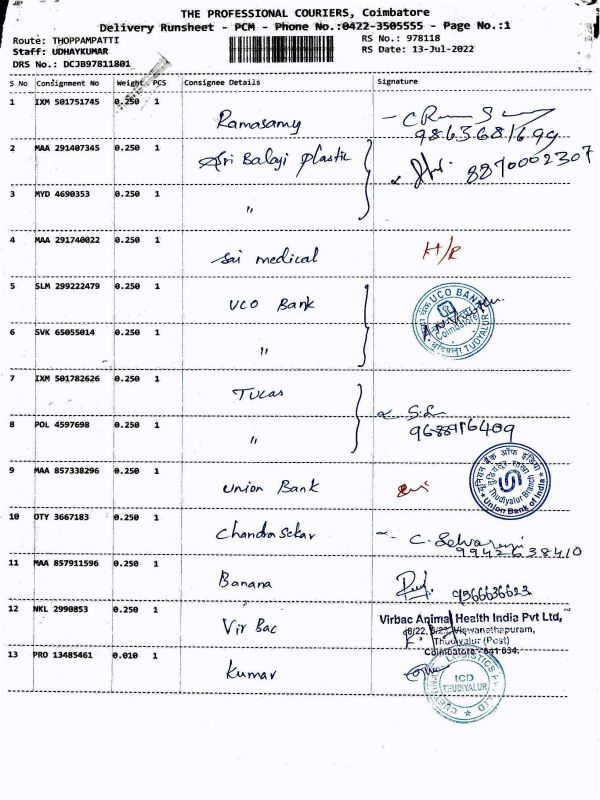 THE PROFESSIONAL COURIERS, Coimbatore
Delivery Runsheet - PCM - Phone No.:0422-3505555 - Page No.:1
Route: THOPPAMPATTI
RS No.: 978118
Staff: UDHAYKUMAR
RS Date: 13-Jul-2022
DRS No.: DCJB97811801
S No Consignment No Weight PCS Consignee Details Signature
1 IXM 501751745 0.250 1
Ramasamy
9863681699
2 MAA 291407345 0.250 1
Sri Balaji plastic
8870002307
3 MYD 4690353 0.250 1
"
4 MAA 291740022 0.250 1
Sai medical H/R
5 SLM 299222479 0.250 1
UCO Bank
UCO BANK
Coimbatore
TUDIYALUR
6 SVK 65055014 0.250 1
"
7 IXM 501782626 0.250 1
Tucas
8 POL 4597698 0.250 1
"
9 MAA 857338296 0.250 1
Union Bank
यूनियन बैंक ऑफ इंडिया
Thudiyalur Branch
Union Bank of India
10 OTY 3667183 0.250 1
Chandrasekar
C. Selvarani
9942638410
11 MAA 857911596 0.250 1
Banana
9366636623
12 NKL 2990853 0.250 1
Vir Bac
Virbac Animal Health India Pvt Ltd,
Viswanathapuram,
Thudiyalur (Post)
Coimbatore - 641 034.
13 PRO 13485461 0.010 1
Kumar
LOGISTICS
ICD
THUDIYALUR